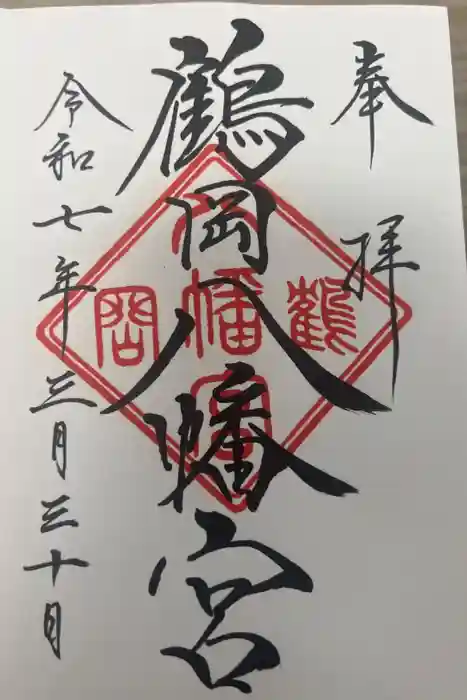 奉拝
鶴岡八幡宮
令和七年三月三十日
鶴岡八幡宮